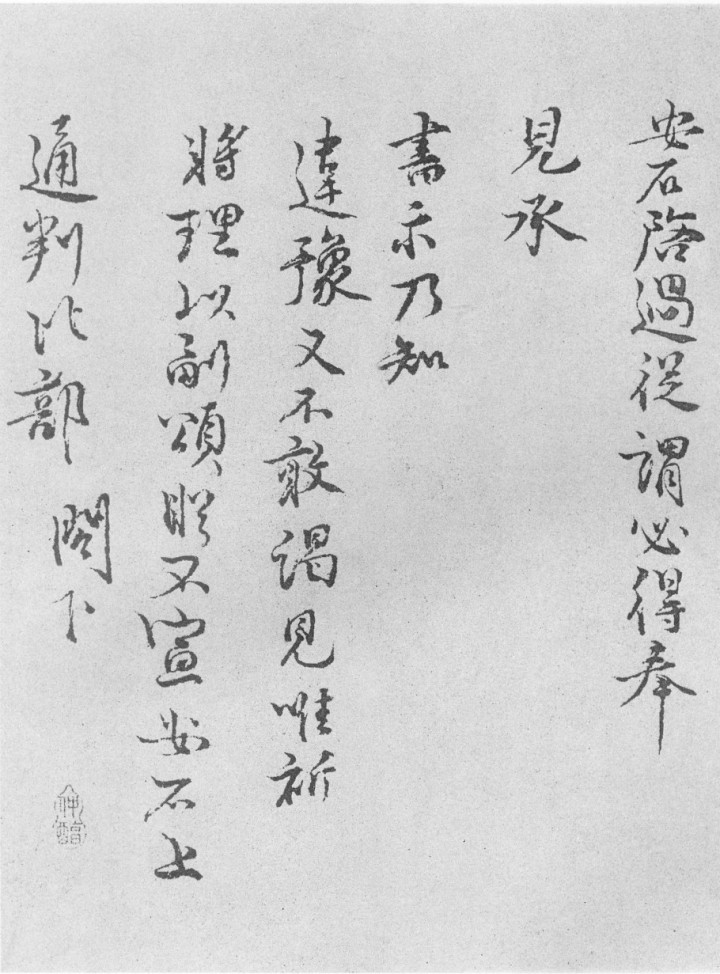 安石啓過從謂必得奉
見承
書示乃知
違豫又不敢謁見唯祈
將理以副頌眎不宣安石上
通判比部 閤下